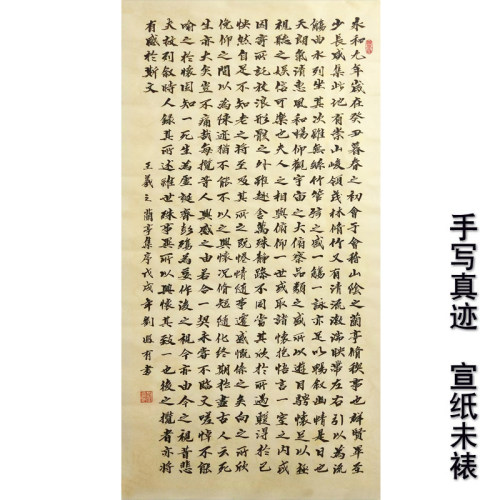 永和九年歲在癸丑暮春之初會于會稽山陰之蘭亭脩稧事也群賢畢至
少長咸集此地有崇山峻領茂林脩竹又有清流激湍暎帶左右引以為流
觴曲水列坐其次雖無絲竹管弦之盛一觴一詠亦足以暢敘幽情是日也
天朗氣清惠風和暢仰觀宇宙之大俯察品類之盛所以遊目騁懷足以極
視聽之娛信可樂也夫人之相與俯仰一世或取諸懷抱悟言一室之內或
因寄所託放浪形骸之外雖趣舍萬殊靜躁不同當其欣於所遇蹔得於己
怏然自足不知老之將至及其所之既惓情隨事遷感慨係之矣向之所欣
俛仰之間以為陳迹猶不能不以之興懷況脩短隨化終期於盡古人云死
生亦大矣豈不痛哉每攬昔人興感之由若合一契未嘗不臨文嗟悼不能
喻之於懷固知一死生為虛誕齊彭殤為妄作後之視今亦由今之視昔悲
夫故列敘時人錄其所述雖世殊事異所以興懷其致一也後之攬者亦將
有感於斯文
王羲之蘭亭集序戊戌年劉恩有書
手写真迹 宣纸未裱